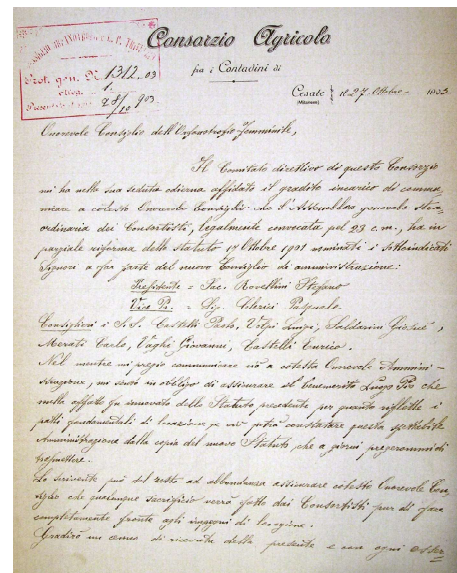 Prot. gen. N. 1312-03
28/10 903
Consorzio Agricolo
fra i Contadini di
Cesate il 27 Ottobre 1903
(Milanese)
Onorevole Consiglio dell'Orfanotrofio Femminile,
Il Comitato direttivo di questo Consorzio
mi ha nella sua seduta odierna affidato il gradito incarico di comu-
nicare a codesto Onorevole Consiglio che l'Assemblea generale stra-
ordinaria dei Consortisti, legalmente convocata pel 23 c.m., ha in
parziale riforma dello statuto 17 Ottobre 1901 nominati i sottoindicati
Signori a far parte del nuovo Consiglio di amministrazione:
Presidente = Sac. Rovellini Stefano
Vice Pr. = Sig. Clerici Pasquale
Consiglieri: S.S. Castelli Paolo, Volpi Luigi, Saldarini
Merati Carlo, Vaghi Giovanni, Castelli Enrico.
Nel mentre mi pregio comunicare ciò a codesta Onorevole Ammini-
strazione, mi sento in obbligo di assicurare il benemerito Luogo Pio che
nulla affatto fu innovato dello Statuto precedente, per quanto riflette i
patti fondamentali di locazione, e ciò potrà constatare questa spettabile
Amministrazione dalla copia del nuovo Statuto, che a giorni
trasmettere.
Lo scrivente può del resto ad abbondanza assicurare codesto Onorevole Con-
siglio che qualunque sacrificio verrà fatto dai Consortisti pur di fare
completamente fronte agli impegni di locazione.
Gradirò un cenno di ricevuta della presente e con ogni osser